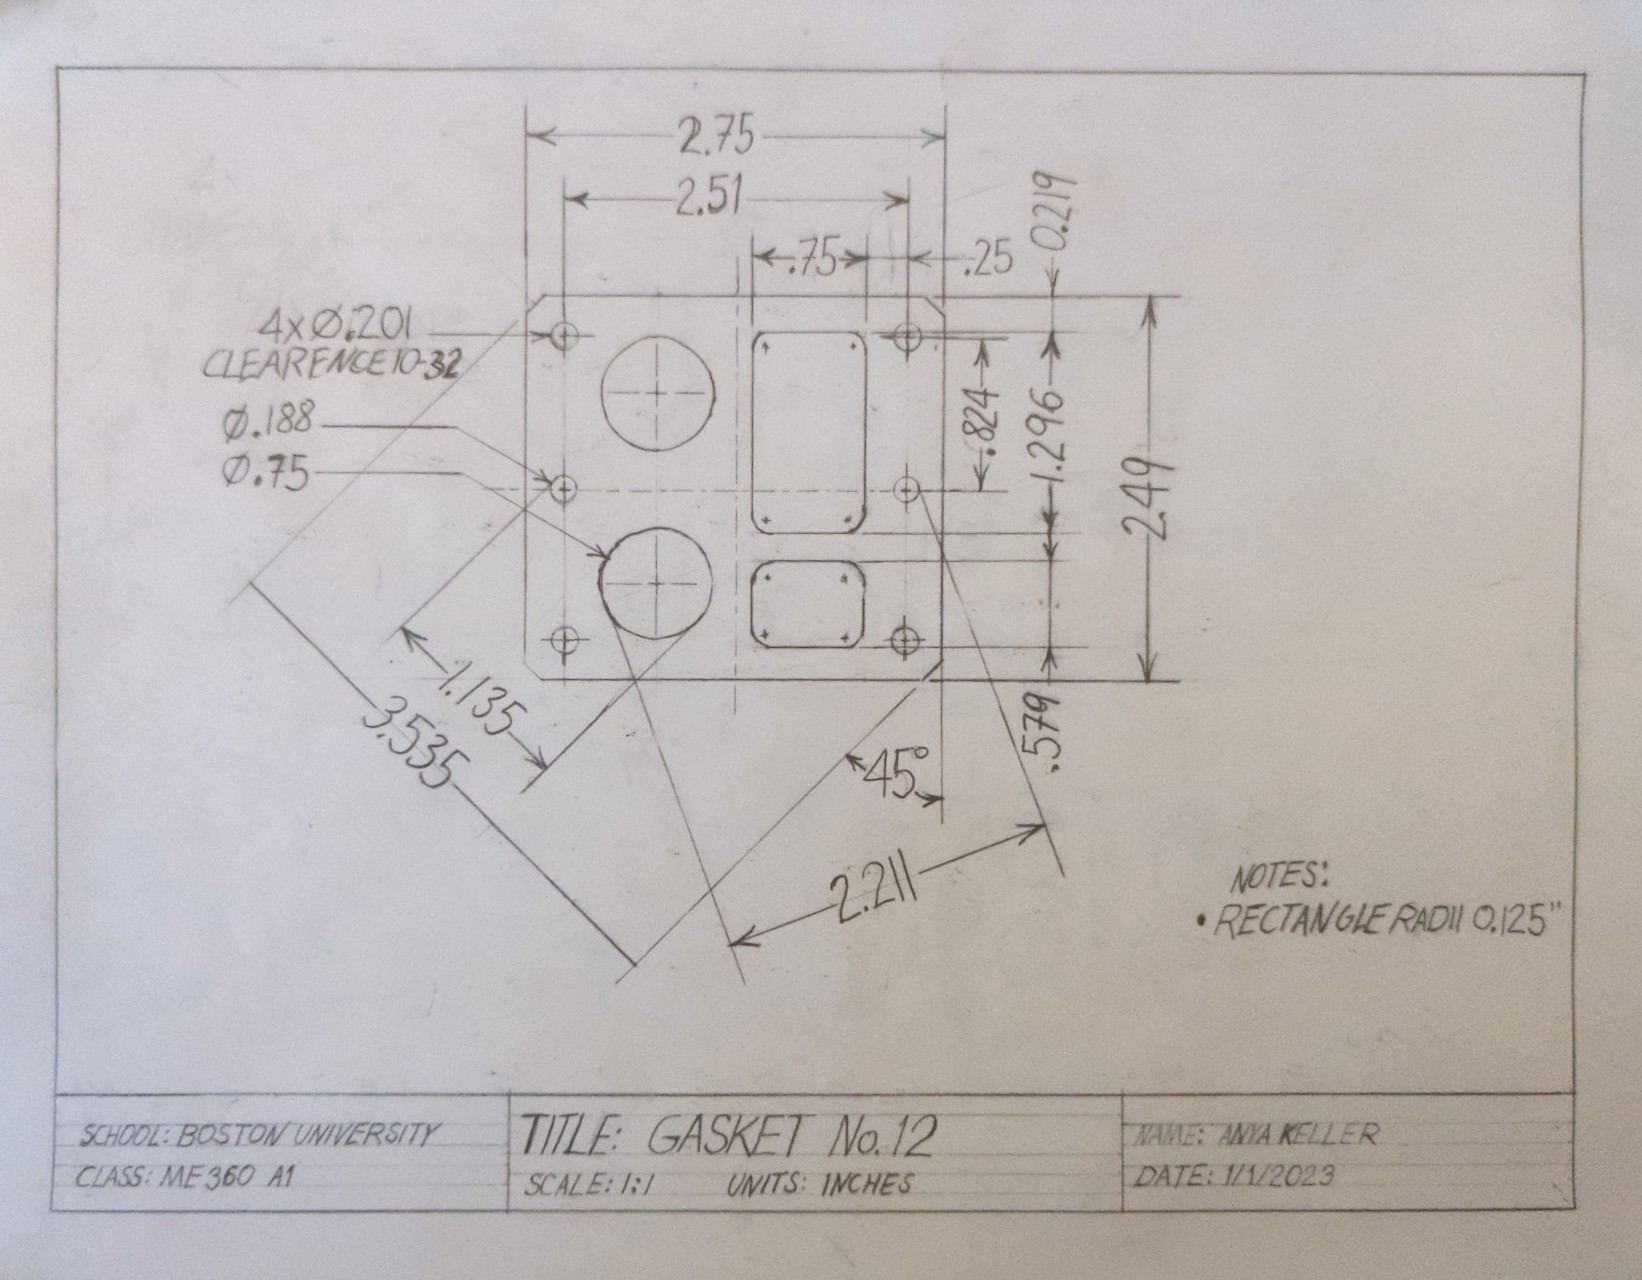 2.75
2.51
0.219
.75
.25
4x Ø.201
CLEARENCE 10-32
Ø.188
Ø.75
.824
1.296
2.49
1.135
3.535
.579
45°
2.211
NOTES:
• RECTANGLE RADII 0.125"
SCHOOL: BOSTON UNIVERSITY
CLASS: ME360 A1
TITLE: GASKET No.12
SCALE: 1:1 UNITS: INCHES
NAME: ANYA KELLER
DATE: 1/1/2023